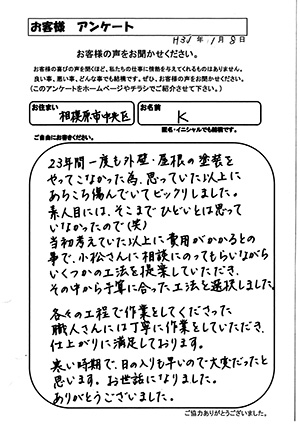 お客様 アンケート
H31年1月8日
お客様の声をお聞かせください。
お客様の喜びの声を聞くほど、私たちの仕事に情熱を与えてくれるものはありません。
良い事、悪い事、どんな事でも結構です。ぜひ、お客様の声をお聞かせください。
(このアンケートをホームページやチラシでご紹介させて下さい。)
お住まい 相模原市中央区 お名前 K
匿名・イニシャルでも結構です。
ご自由にお書きください。
23年間一度も外壁・屋根の塗装を
やってこなかった為、思っていた以上に
あちこち傷んでいてビックリしました。
素人目には、そこまでひどいとは思って
いなかったので(笑)
当初考えていた以上に費用がかかるとの
事で、小松さんに相談にのってもらいながら
いくつかの工法を提案していただき、
その中から予算に合った工法を選択しました。
各々の工程で作業をしてくださった
職人さんには丁寧に作業をしていただき、
仕上がりに満足しております。
寒い時期で、日の入りも早いので大変だったと
思います。お世話になりました。
ありがとうございました。
ご協力ありがとうございました。